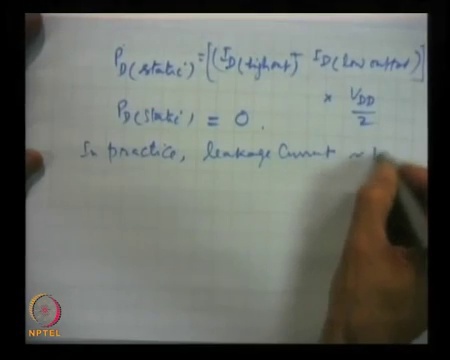 P_D(static) = [(I_D(high out) + I_D(low output)]
× V_DD/2
P_D(static) = 0.
In practice, leakage Current ~
NPTEL